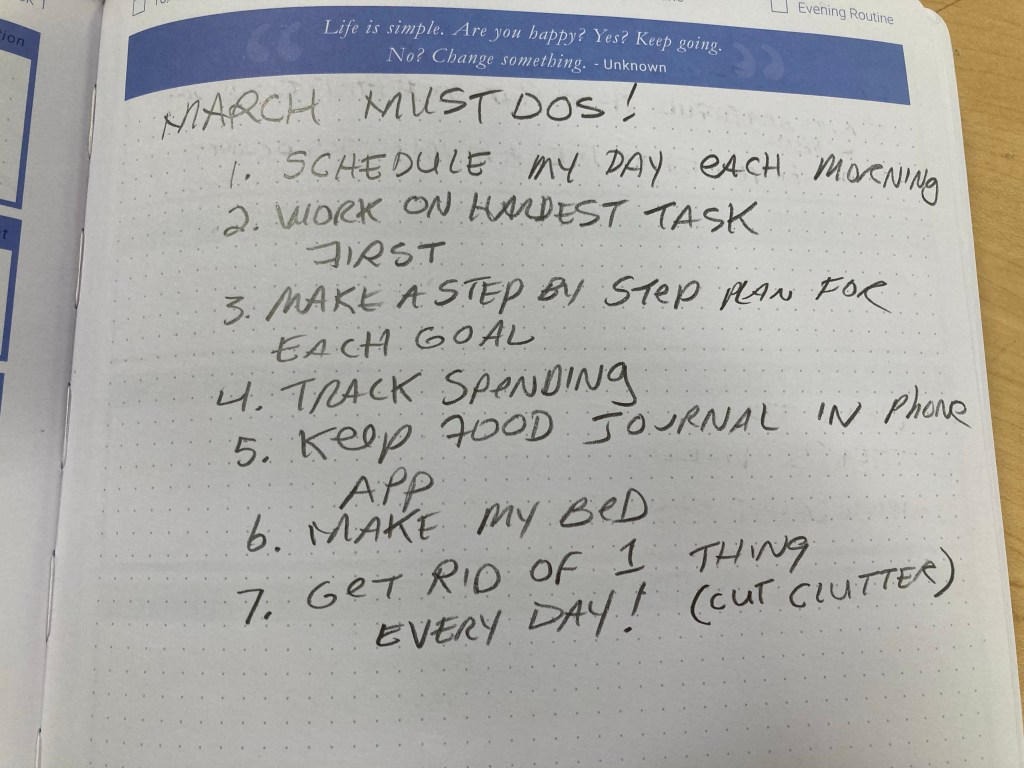 Evening Routine
Life is simple. Are you happy? Yes? Keep going.
No? Change something. - Unknown
MARCH MUST DOS!
1. SCHEDULE MY DAY EACH MORNING
2. WORK ON HARDEST TASK
FIRST
3. MAKE A STEP BY STEP PLAN FOR
EACH GOAL
4. TRACK SPENDING
5. KEEP FOOD JOURNAL IN PHONE
APP
6. MAKE MY BED
7. GET RID OF 1 THING
EVERY DAY! (CUT CLUTTER)